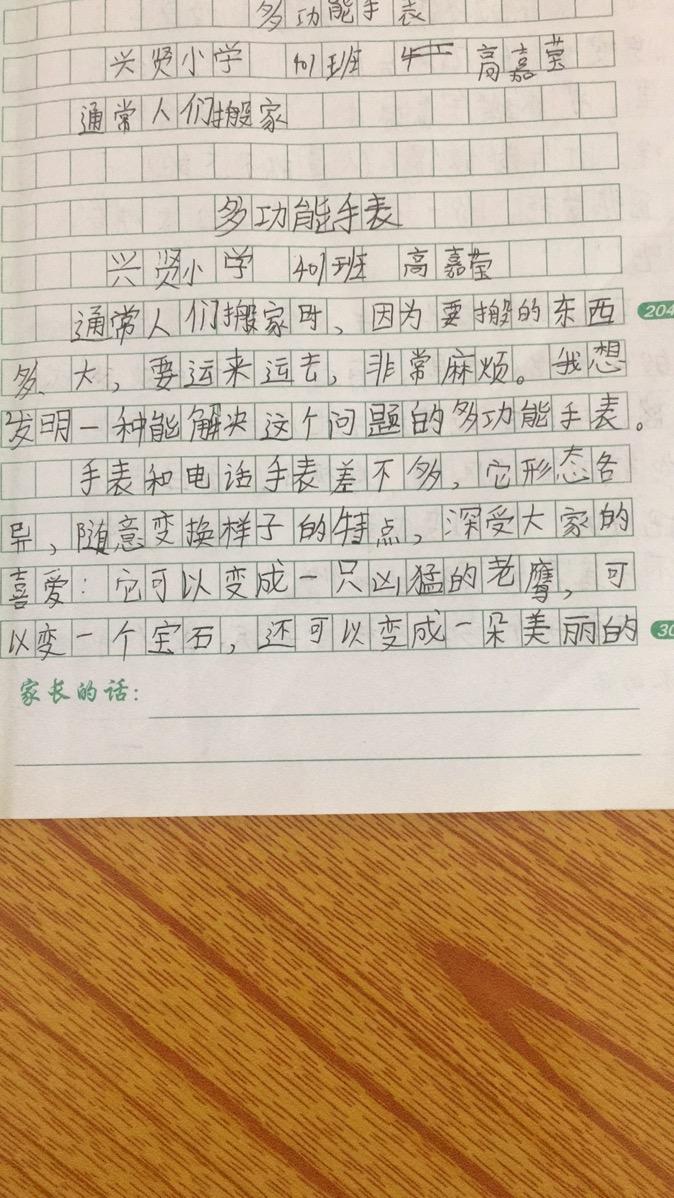 多功能手表
兴贤小学 401班 高嘉莹
通常人们搬家
多功能手表
兴贤小学 401班 高嘉莹
通常人们搬家时、因为要搬的东西
204
多、大，要运来运去，非常麻烦。我想
发明一种能解决这个问题的多功能手表。
手表和电话手表差不多，它形态各
异，随意变换样子的特点，深受大家的
喜爱：它可以变成一只凶猛的老鹰，可
以变一个宝石，还可以变成一朵美丽的
30
家长的话：